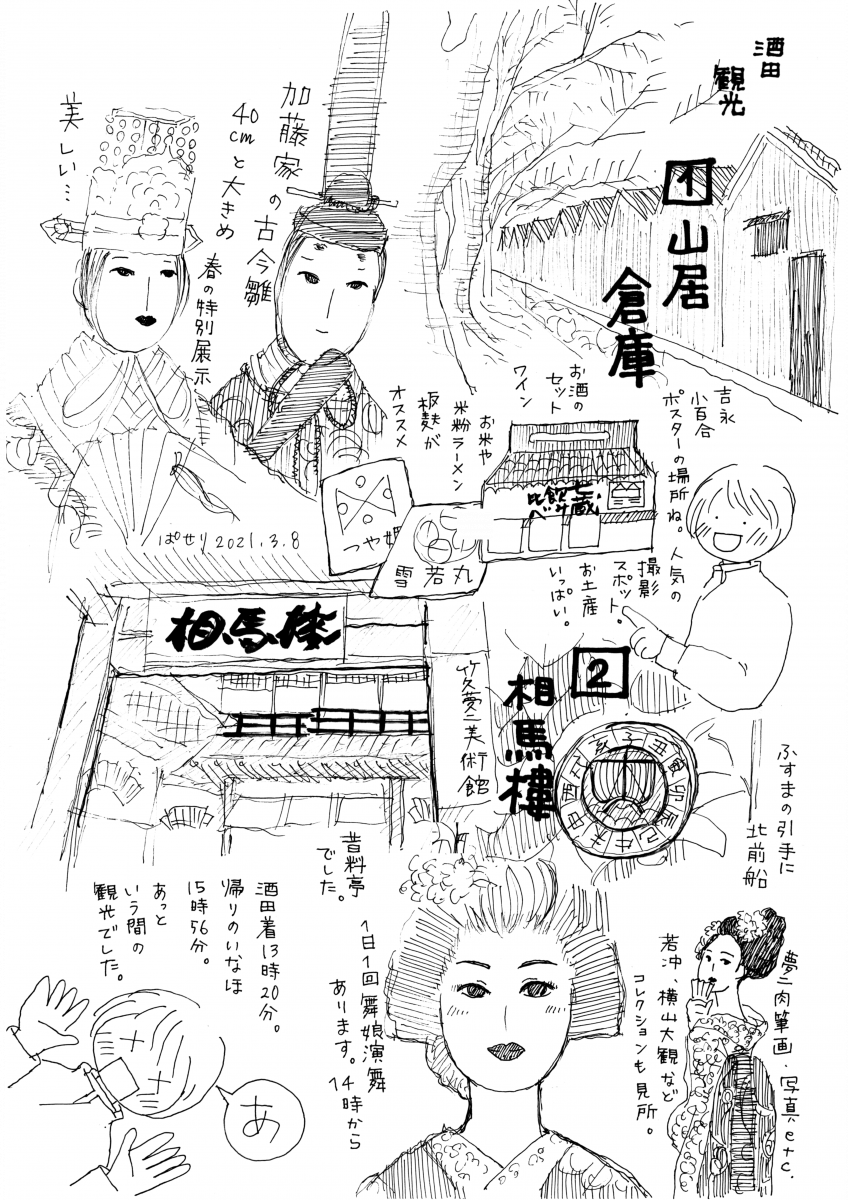 酒田
観光
1 山居
倉庫
加藤家の古今雛
40cmと大きめ
春の特別展示
美しい…
ぱせり 2021.3.8
吉永
小百合
ポスターの場所ね。人気の
撮影
スポット。
お土産
いっぱい。
お酒の
セット
ワイン
お米や
米粉ラーメン
板麩が
オススメ
つや姫
雪若丸
2
相馬樓
相馬樓
竹久夢二美術館
子丑寅卯辰巳午未申酉戌亥
ふすまの引手に
北前船
昔料亭
でした。
1日1回舞娘演舞
あります。14時から
夢二肉筆画・写真、etc.
若沖、横山大観など
コレクションも見所。
酒田着13時20分。
帰りのいなほ
15時56分。
あっと
いう間の
観光でした。
あ